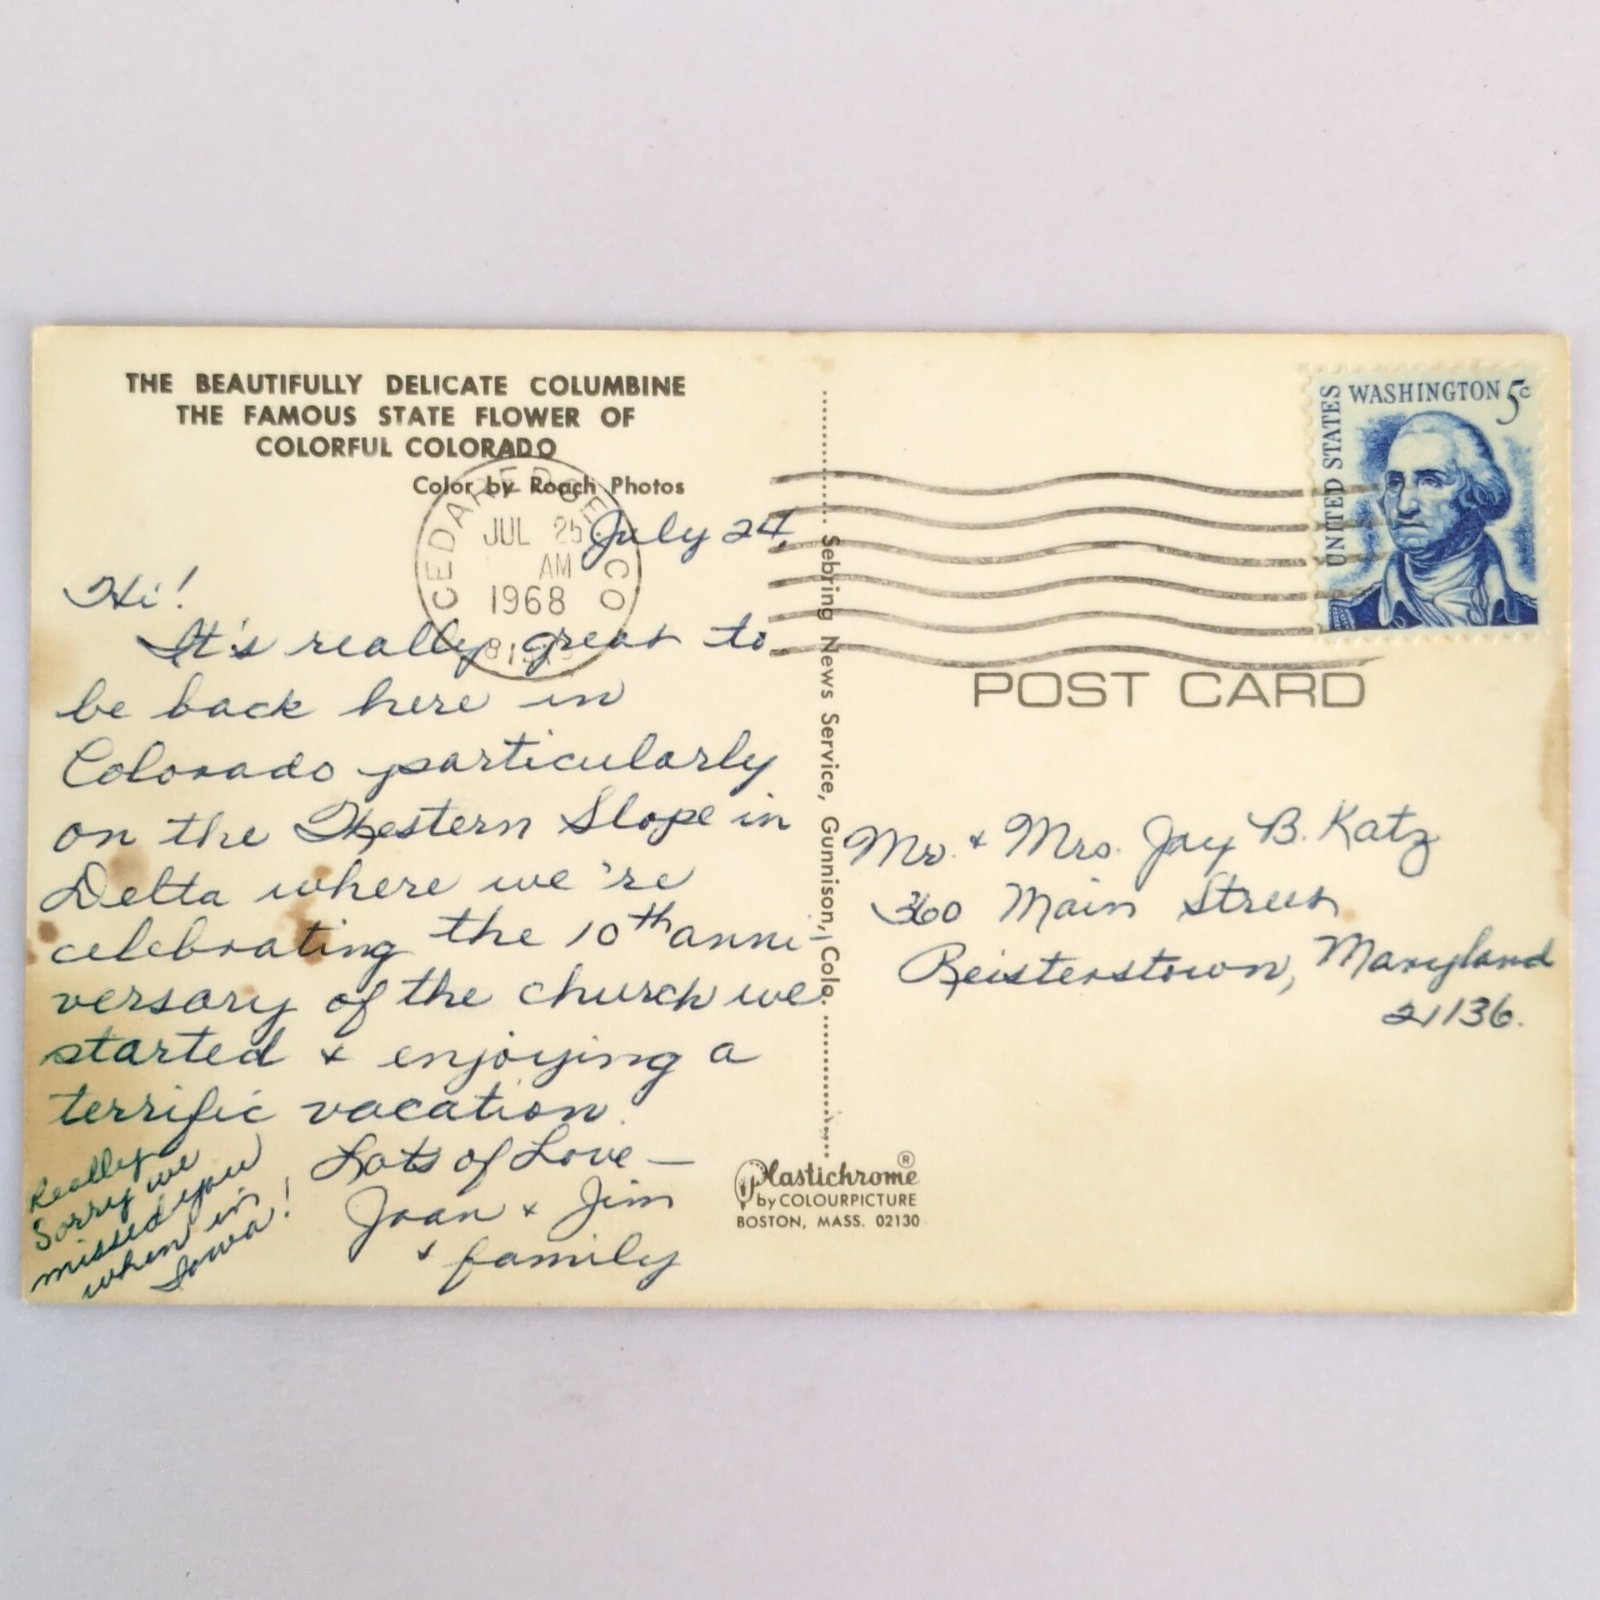 THE BEAUTIFULLY DELICATE COLUMBINE
THE FAMOUS STATE FLOWER OF
COLORFUL COLORADO
Color by Roach Photos
CEDAREDGE CO
JUL 25
AM
1968
July 24,
Hi!
It's really great to
be back here in
Colorado particularly
on the Western Slope in
Delta where we're
celebrating the 10th anni-
versary of the church we
started & enjoying a
terrific vacation.
Lots of Love —
Joan & Jim
& family
Really
Sorry we
missed you
when in
Iowa!
Sebring News Service, Gunnison, Colo.
Plastichrome ®
by COLOURPICTURE
BOSTON, MASS. 02130
UNITED STATES
WASHINGTON 5c
POST CARD
Mr. & Mrs. Jay B. Katz
360 Main Street
Reisterstown, Maryland
21136.